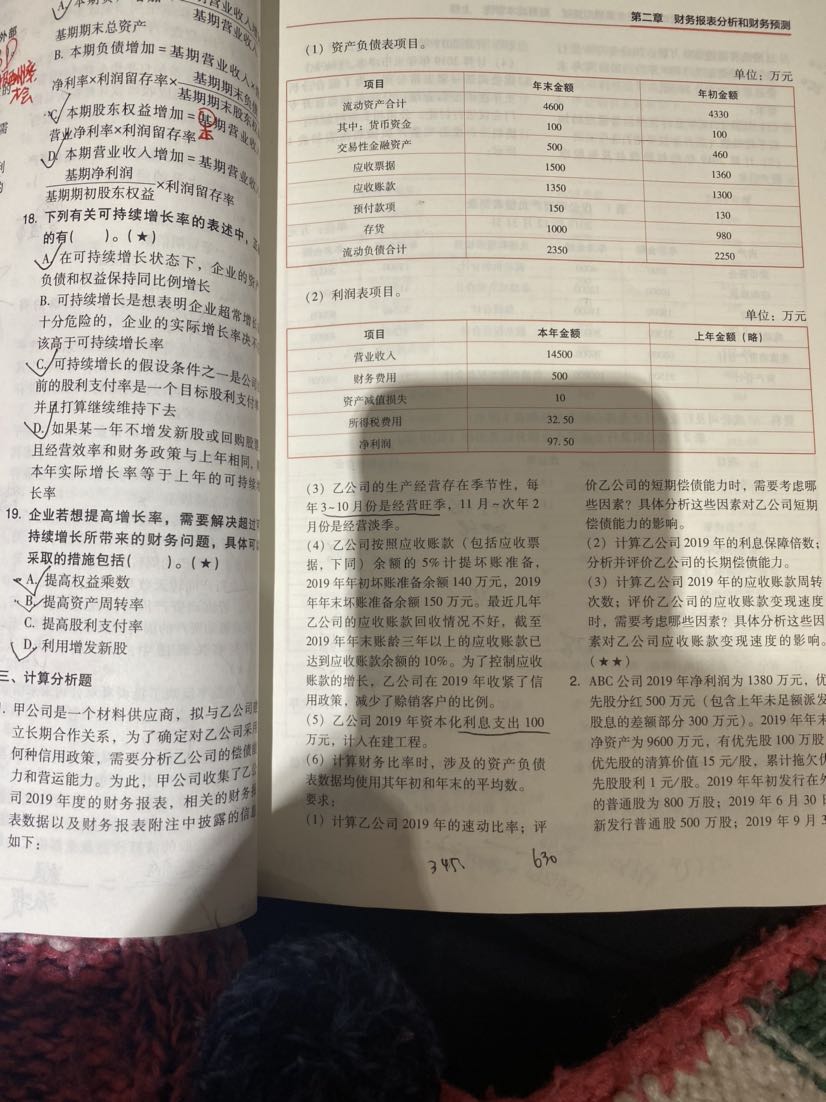 外部
需
A. 本期资产增加=
基期营业收入
基期期末总资产
B. 本期负债增加=基期营业收入×
净利率×利润留存率×基期期末负
基期期末股东权
C. 本期股东权益增加=基期营业收
本
营业净利率×利润留存率
D. 本期营业收入增加=基期营业收
基期净利润
基期期初股东权益×利润留存率
18. 下列有关可持续增长率的表述中,正
的有( )。(★)
A. 在可持续增长状态下,企业的资产
负债和权益保持同比例增长
B. 可持续增长是想表明企业超常增长
十分危险的,企业的实际增长率决不
该高于可持续增长率
C. 可持续增长的假设条件之一是公司
前的股利支付率是一个目标股利支付率
并且打算继续维持下去
D. 如果某一年不增发新股或回购股票
且经营效率和财务政策与上年相同,
本年实际增长率等于上年的可持续增
长率
19. 企业若想提高增长率,需要解决超过可
持续增长所带来的财务问题,具体可以
采取的措施包括( )。(★)
A. 提高权益乘数
B. 提高资产周转率
C. 提高股利支付率
D. 利用增发新股
三、计算分析题
. 甲公司是一个材料供应商,拟与乙公司建
立长期合作关系,为了确定对乙公司采用
何种信用政策,需要分析乙公司的偿债能
力和营运能力。为此,甲公司收集了乙公
司2019年度的财务报表,相关的财务报
表数据以及财务报表附注中披露的信息
如下:
第二章 财务报表分析和财务预测
(1)资产负债表项目。
单位:万元
项目 年末金额 年初金额
流动资产合计 4600 4330
其中:货币资金 100 100
交易性金融资产 500 460
应收票据 1500 1360
应收账款 1350 1300
预付款项 150 130
存货 1000 980
流动负债合计 2350 2250
(2)利润表项目。
单位:万元
项目 本年金额 上年金额(略)
营业收入 14500
财务费用 500
资产减值损失 10
所得税费用 32.50
净利润 97.50
(3)乙公司的生产经营存在季节性,每
年3~10月份是经营旺季,11月~次年2
月份是经营淡季。
(4)乙公司按照应收账款(包括应收票
据,下同)余额的5%计提坏账准备,
2019年年初坏账准备余额140万元,2019
年年末坏账准备余额150万元。最近几年
乙公司的应收账款回收情况不好,截至
2019年年末账龄三年以上的应收账款已
达到应收账款余额的10%。为了控制应收
账款的增长,乙公司在2019年收紧了信
用政策,减少了赊销客户的比例。
(5)乙公司2019年资本化利息支出100
万元,计入在建工程。
(6)计算财务比率时,涉及的资产负债
表数据均使用其年初和年末的平均数。
要求:
(1)计算乙公司2019年的速动比率;评
价乙公司的短期偿债能力时,需要考虑哪
些因素?具体分析这些因素对乙公司短期
偿债能力的影响。
(2)计算乙公司2019年的利息保障倍数;
分析并评价乙公司的长期偿债能力。
(3)计算乙公司2019年的应收账款周转
次数;评价乙公司的应收账款变现速度
时,需要考虑哪些因素?具体分析这些因
素对乙公司应收账款变现速度的影响。
(★★)
2. ABC公司2019年净利润为1380万元,优
先股分红500万元(包含上年未足额派发
股息的差额部分300万元)。2019年年末
净资产为9600万元,有优先股100万股
优先股的清算价值15元/股,累计拖欠优
先股股利1元/股。2019年年初发行在外
的普通股为800万股;2019年6月30日
新发行普通股500万股;2019年9月3
345
630